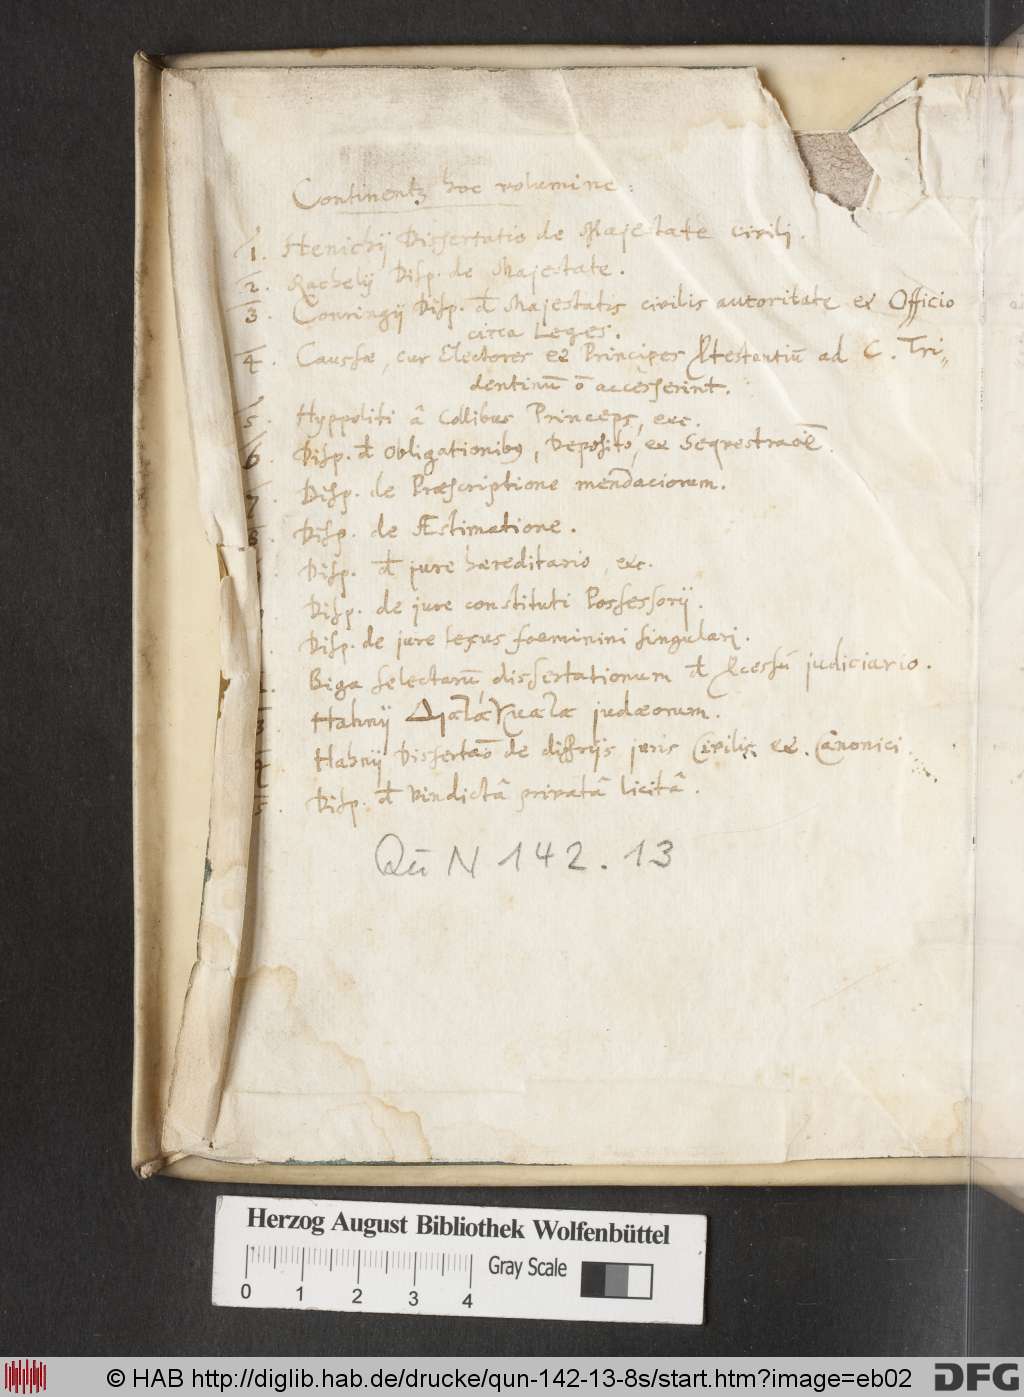 Continentz hoc volumine:
1. Henichij Dissertatio de Majestate civili.
2. Rachelij Disp. de Majestate.
3. Conringij Disp. d̄ Majestatis civilis autoritate et Officio
circa Leges.
4. Caussæ, cur Electores et Principes Ptestantiū ad C. Tri„
dentinū ō accesserint.
5. Hyppoliti â Collibus Princeps, etc.
6. Disp. d̄ Obligationibus, Deposito, et Sequestraōe.
7. Disp. de Præscriptione mendaciorum.
8. Disp. de Æstimatione.
Disp. d̄ jure hæreditario, etc.
Disp. de jure constituti Possessorij.
Disp. de jure sexus foeminini singulari.
Biga selectarū dissertationum d̄ Pcessú judiciario.
3 Hahnij judæorum.
4 Hahnij Dissertaō de differijs juris Civilis et Canonici.
5. Disp. d̄ Vindictâ privatâ licitâ.
Qū N 142.13
Herzog August Bibliothek Wolfenbüttel
Gray Scale
0 1 2 3 4
© HAB http://diglib.hab.de/drucke/qun-142-13-8s/start.htm?image=eb02
DFG